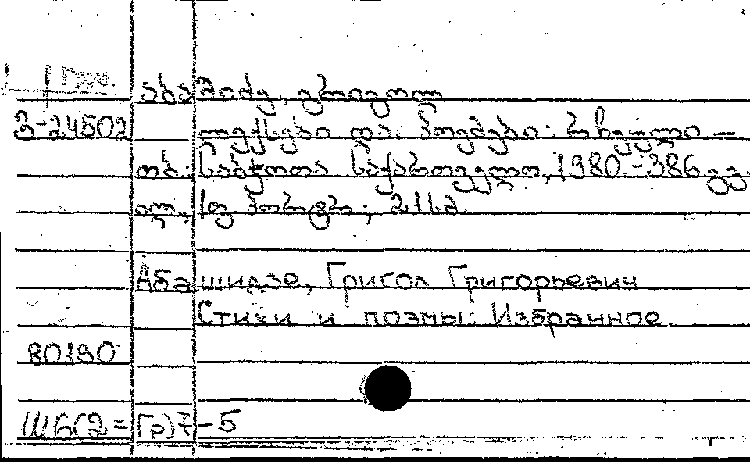 Груз.
აბაშიძე, გრიგოლ
3-24502 ლექსები და პოემები: რჩეული –
თბ.: საბჭოთა საქართველო, 1980.-386 გვ.
ილ., 1ფ პორტრ.; 21სმ
Абашидзе, Григол Григорьевич
Стихи и поэмы: Избранное
80190
Ш6(2=Гр)7-5